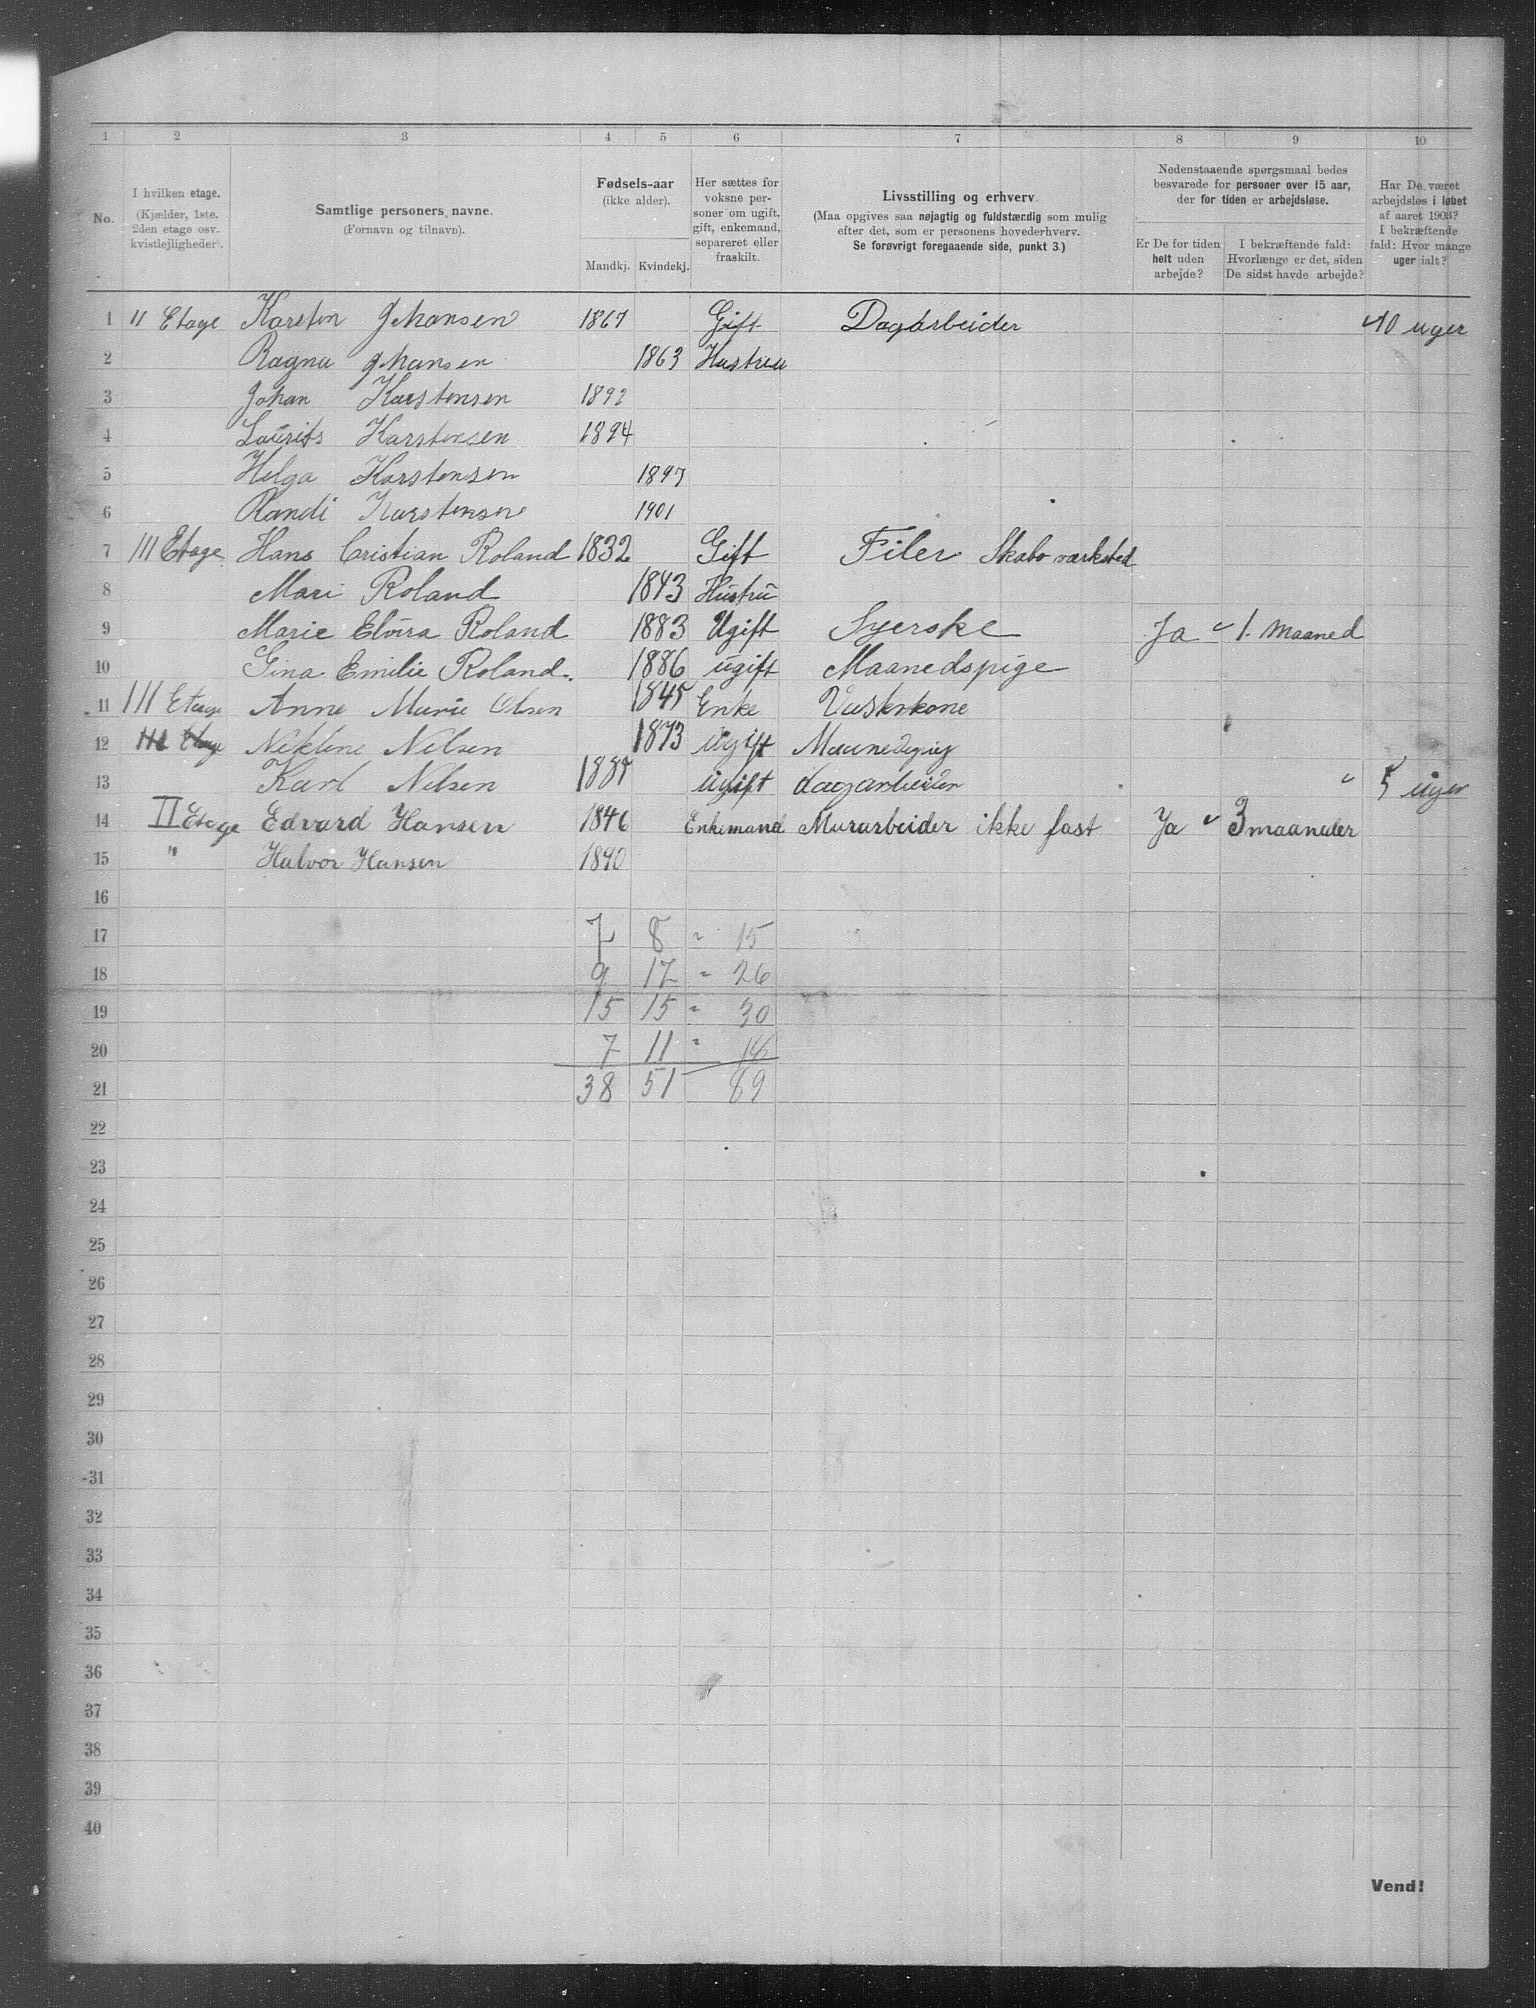 1 2 3 4 5 6 7 8 9 10
No. I hvilken etage. (Kjælder, 1ste. 2den etage osv. kvistlejligheder). Samtlige personers navne. (Fornavn og tilnavn). Fødsels-aar (ikke alder). Mandkj. Kvindekj. Her sættes for voksne personer om ugift, gift, enkemand, separeret eller fraskilt. Livsstilling og erhverv. (Maa opgives saa nøjagtig og fuldstændig som mulig efter det, som er personens hovederhverv. Se forøvrigt foregaaende side, punkt 3.) Nedenstaaende spørgsmaal bedes besvarede for personer over 15 aar, der for tiden er arbejdsløse. Er De for tiden helt uden arbejde? I bekræftende fald: Hvorlænge er det, siden De sidst havde arbejde? Har De været arbejdsløs i løbet af aaret 1903? I bekræftende fald: Hvor mange uger ialt?
1 " Etage Karsten Johansen 1867 Gift Dagarbeider 10 uger
2 Ragna Johansen 1863 Hustru
3 Johan Karstensen 1892
4 Laurits Karstensen 1894
5 Helga Karstensen 1897
6 Randi Karstensen 1901
7 III Etage Hans Cristian Roland 1832 Gift Filer Skabo værksted
8 Mari Roland 1843 Hustru
9 Marie Elvira Roland 1883 Ugift Syerske Ja 1. Maaned
10 Gina Emilie Roland. 1886 ugift Maanedspige
11 III Etage Anne Marie Olsen 1845 Enke Vaskekone
12 III Etage Nikline Nilsen 1873 ugift Maanedspig
13 Karl Nilsen ugift dagarbeider " 5 uger
14 II Etage Edvard Hansen 1846 Enkemand Murarbeider ikke fast Ja 3 maaneder
15 " Halvor Hansen 1890
16
17 7 8 " 15
18 9 17 " 26
19 15 15 " 30
20 7 11 " 18
21 38 51 89
22
23
24
25
26
27
28
29
30
31
32
33
34
35
36
37
38
39
40
Vend!